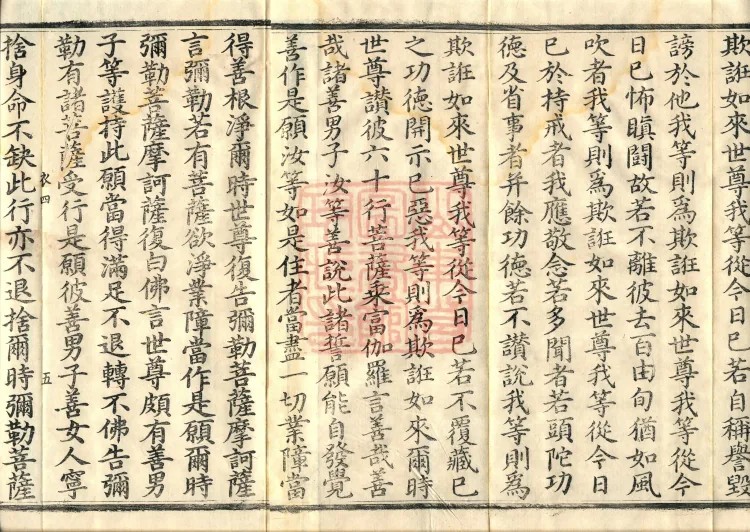 欺誑如來世尊我等從今日已若自稱譽毀
謗於他我等則爲欺誑如來世尊我等從今
日已怖瞋鬪故若不離彼去百由旬猶如風
吹者我等則爲欺誑如來世尊我等從今日
已於持戒者我應敬念若多聞者若頭陀功
德及省事者并餘功德若不讚說我等則爲
欺誑如來世尊我等從今日已若不覆藏已
之功德開示已惡我等則爲欺誑如來爾時
世尊讚彼六十行菩薩乘富伽羅言善哉善
哉諸善男子汝等善說此諸誓願能自發覺
善作是願汝等如是住者當盡一切業障當
得善根淨爾時世尊復告彌勒菩薩摩訶薩
言彌勒若有菩薩欲淨業障當作是願爾時
彌勒菩薩摩訶薩復白佛言世尊頗有善男
子等護持此願當得滿足不退轉不佛告彌
衣四 五
勒有諸菩薩受行是願彼善男子善女人寧
捨身命不缺此行亦不退捨爾時彌勒菩薩